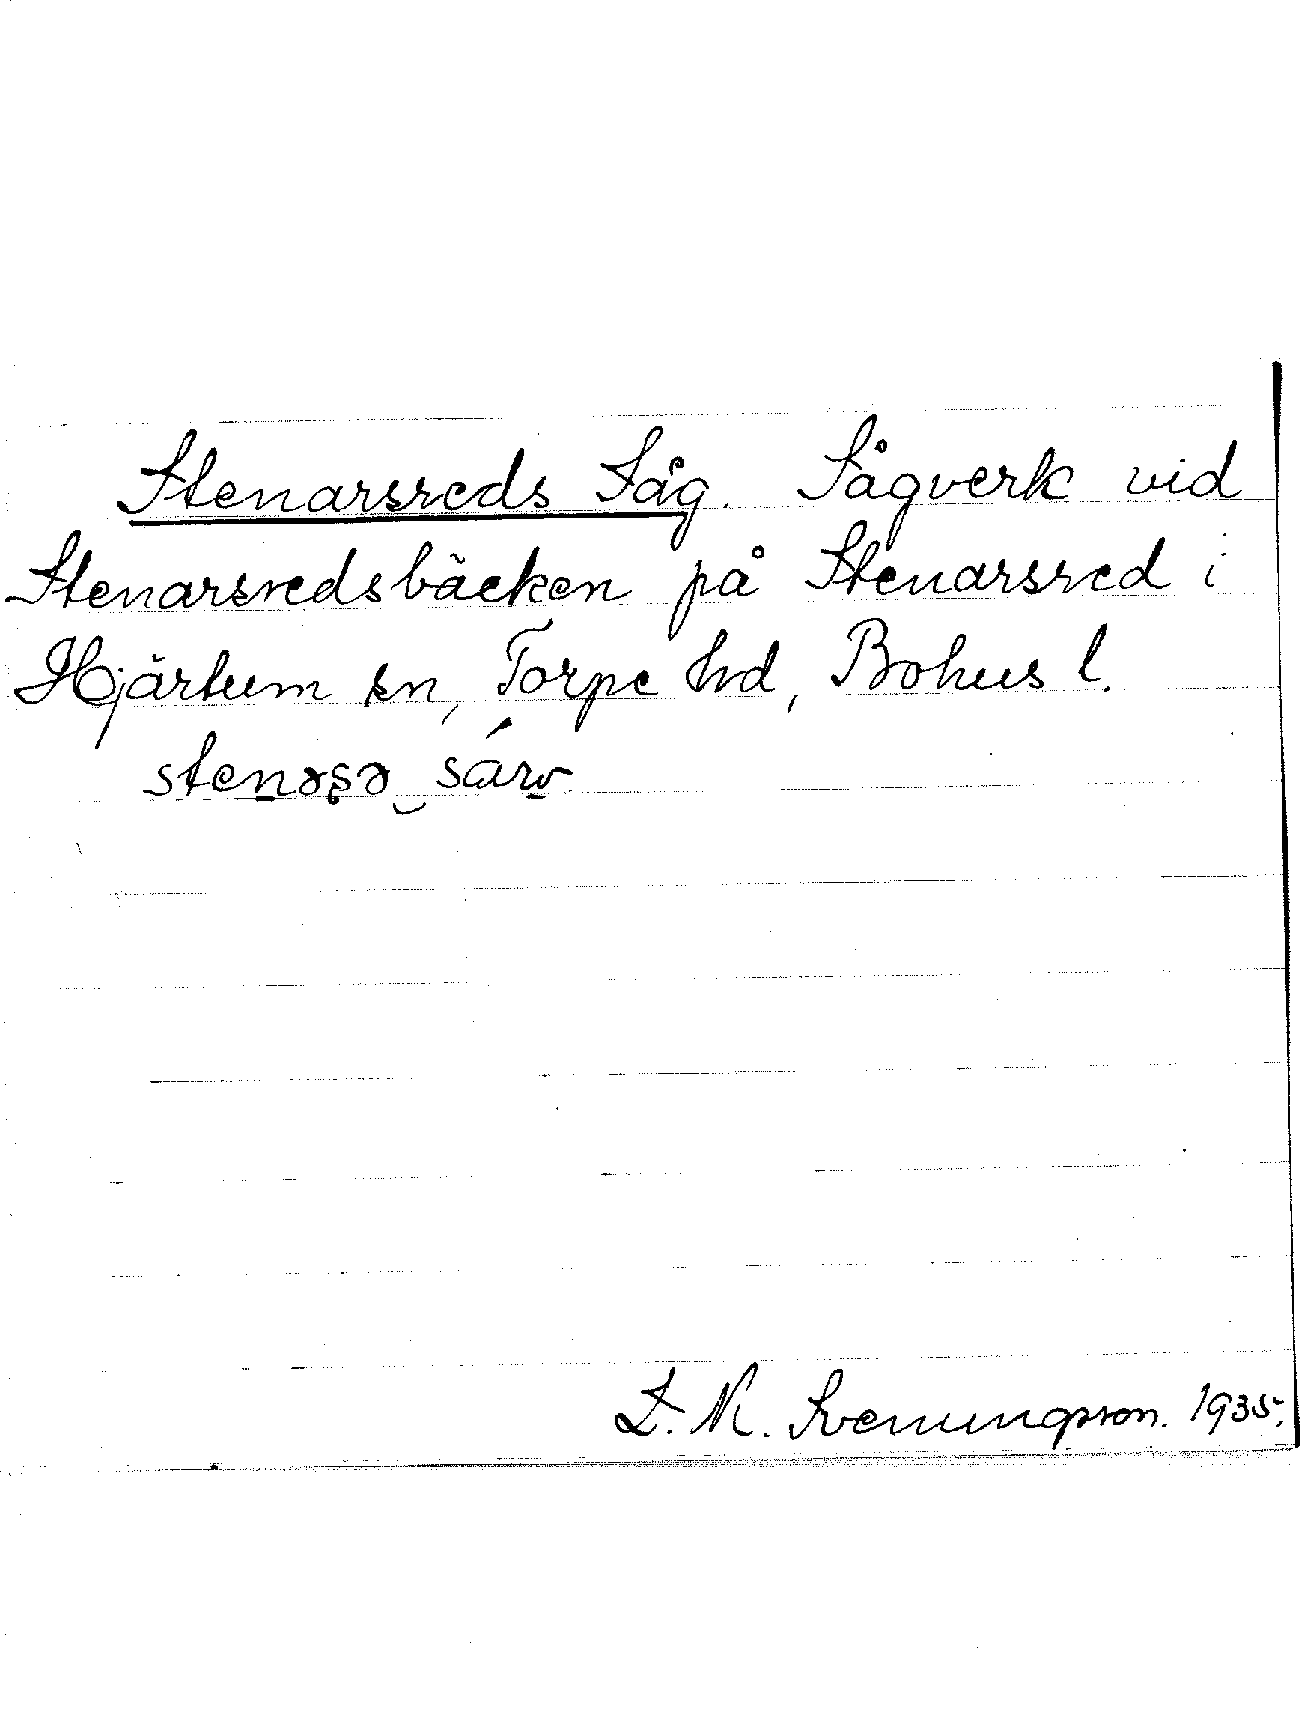 Stenarsreds Såg. Sågverk vid
Stenarsredsbäcken på Stenarsred i
Hjärtum sn, Torpe hd, Bohus l.
stenəʂə‿
D. N. Svenungsson. 1935.